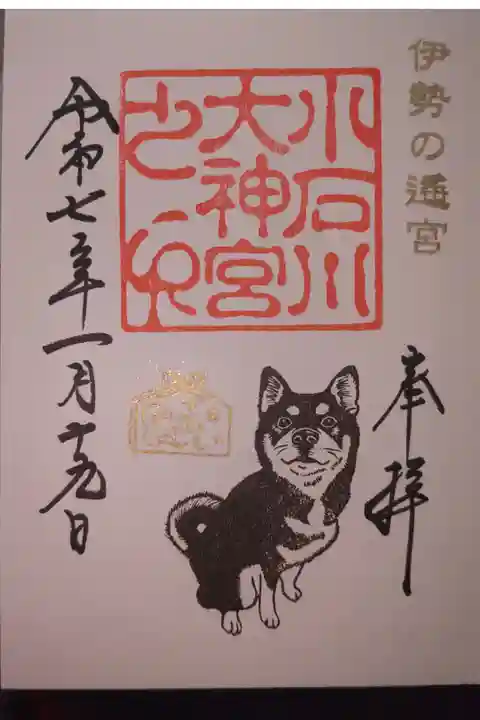 伊勢の遥宮
奉拝
小石川
大神宮
之印
令和七年一月十九日